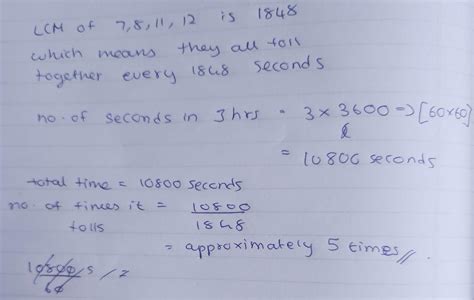 LCM of 7,8,11,12 is 1848
which means they all toll
together every 1848 seconds
no. of seconds in 3 hrs = 3 x 3600 => [60x60]
= 10800 seconds
total time = 10800 seconds
no. of times it = 10800
tolls 1848
= approximately 5 times //